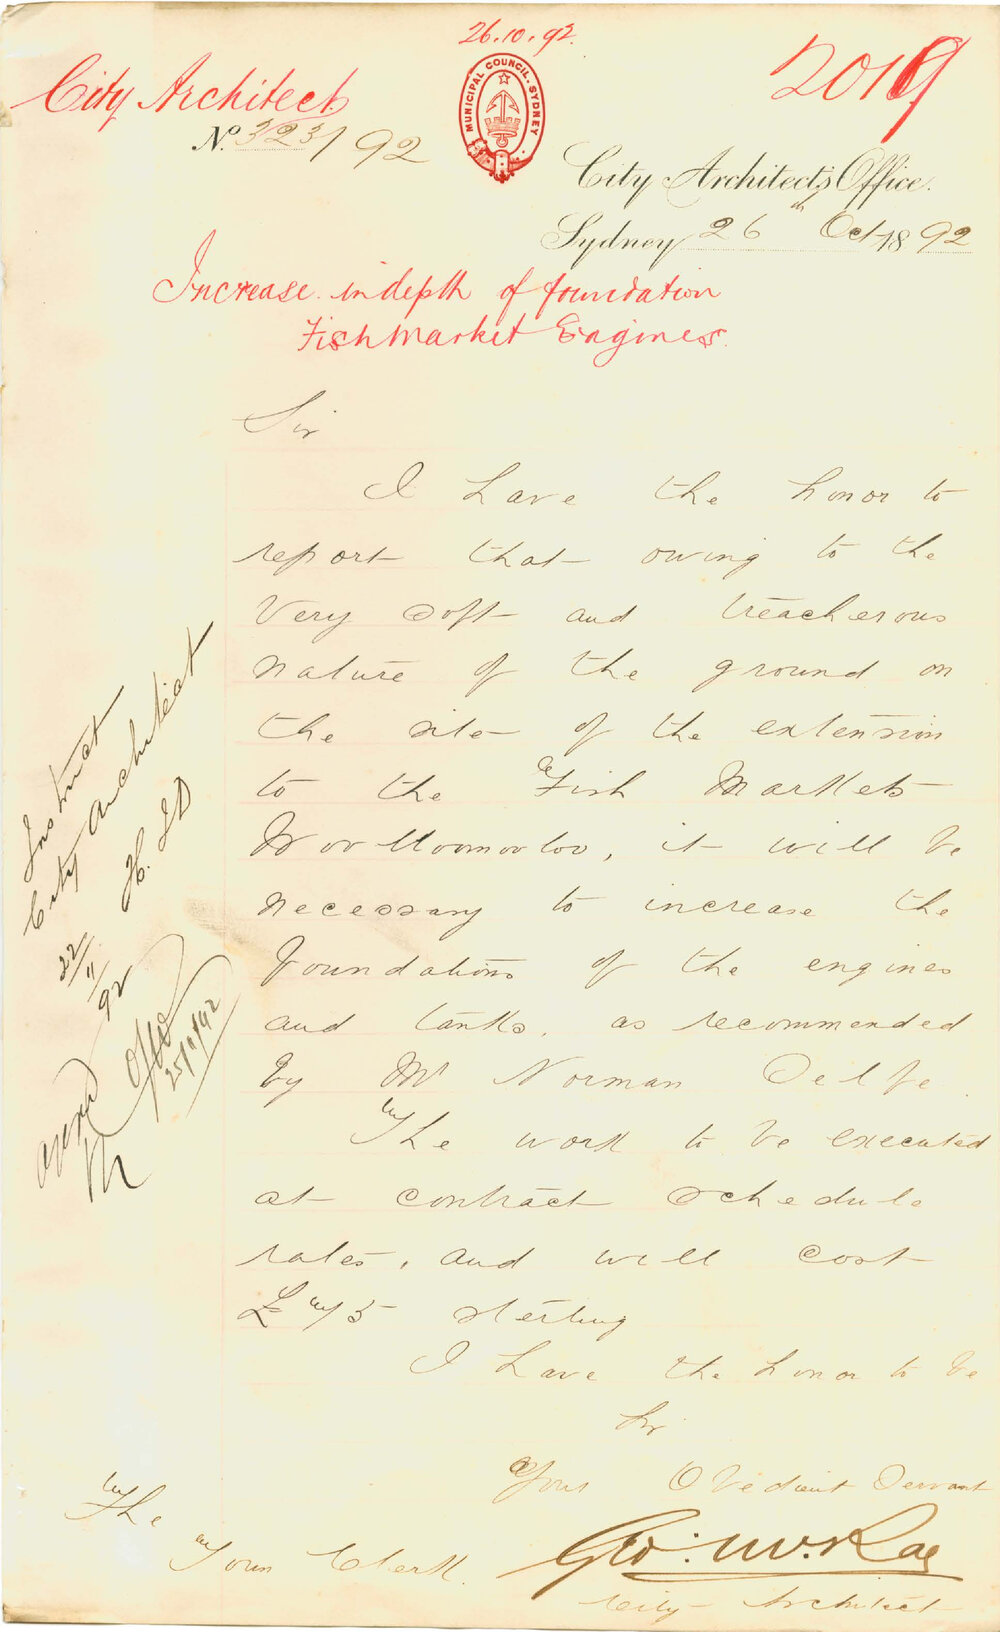 26.10.92.
City Architect
2019
MUNICIPAL COUNCIL. SYDNEY
No. 323/92
City Architect's Office.
Sydney 26th Oct 1892
Increase in depth of foundation
Fish Market Engines.
Sir
I have the honor to
report that owing to the
very soft and treacherous
nature of the ground on
the site of the extension
to the Fish Markets
Woolloomooloo, it will be
necessary to increase the
foundations of the engines
and tanks, as recommended
by Mr Norman Selfe
The work to be executed
at contract schedule
rates, and will cost
£75 sterling
I have the honor to be
Sir
Your Obedient Servant
Geo: McRae
City Architect
The
Town Clerk.
Instruct
City Architect
22/11/92
25/11/92